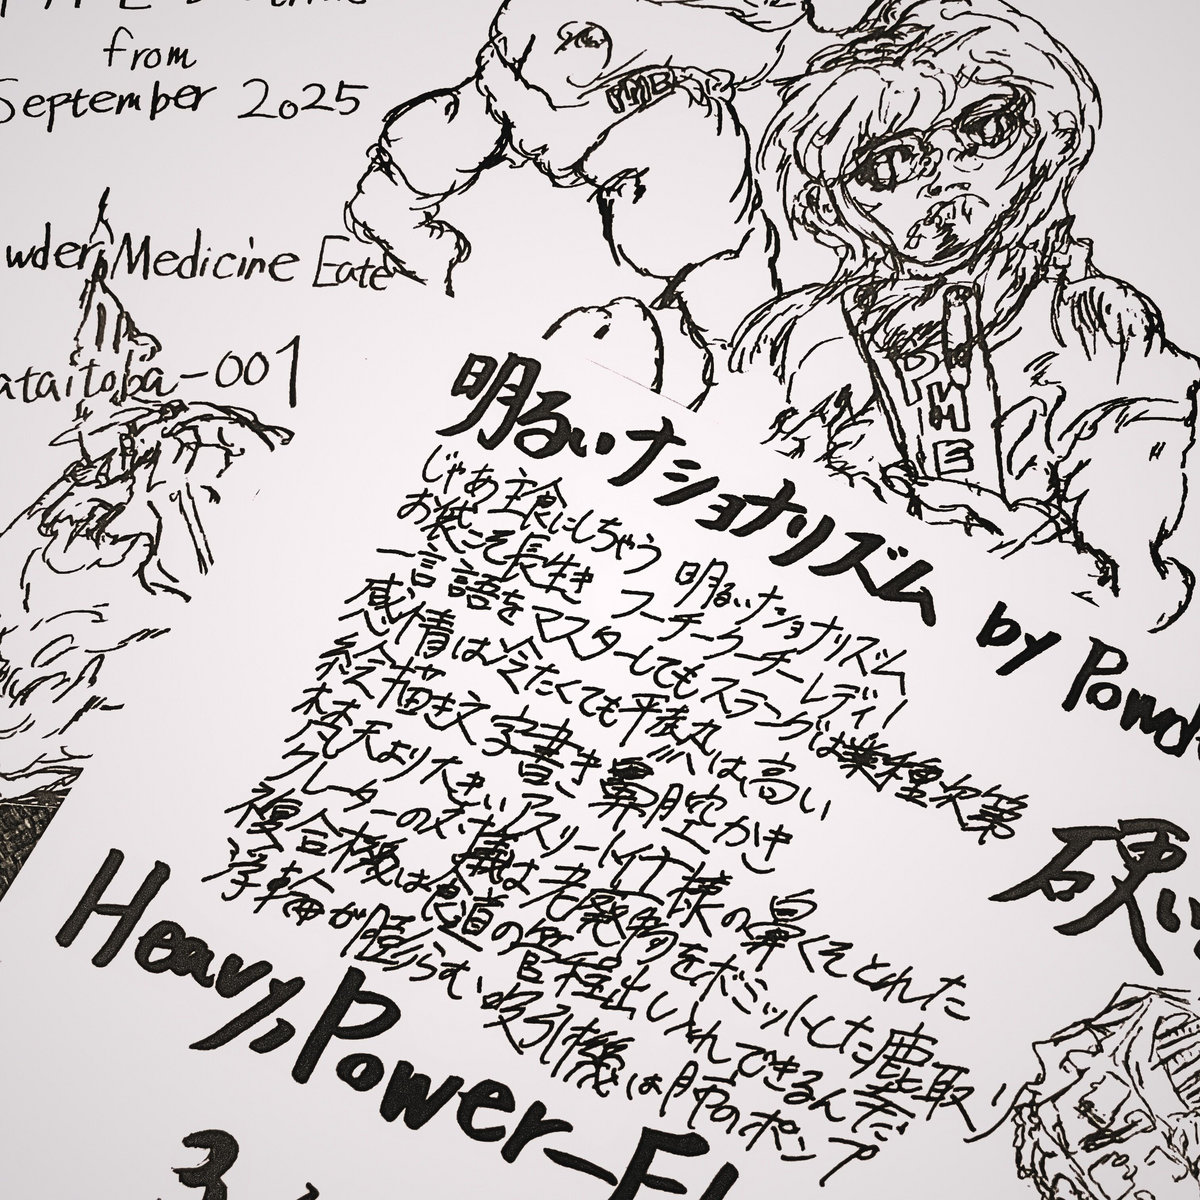 from
September 2025
wder Medicine Eate
ataitoba-001
MMB
PME
明るいナショナリズム by Powd
じゃあ主食にしちゃう 明るいナショナリズム
お装こそ長生き フーチークーチーレディ
一言語をマスターしてもスラングは業種次第
感情は冷たくても平熱は高い
絵描き文字書き鼻腔かき
林
空天より大きいアスリート仕様の鼻くそとれた
クレーターの対儀は老廃物をボミットした鹿取り
複合機は食道の管程出し入れできるんだ
浮輪が膨らむ吸引機は肺のポンプ
硬い
Heavy, Power-Fl
3